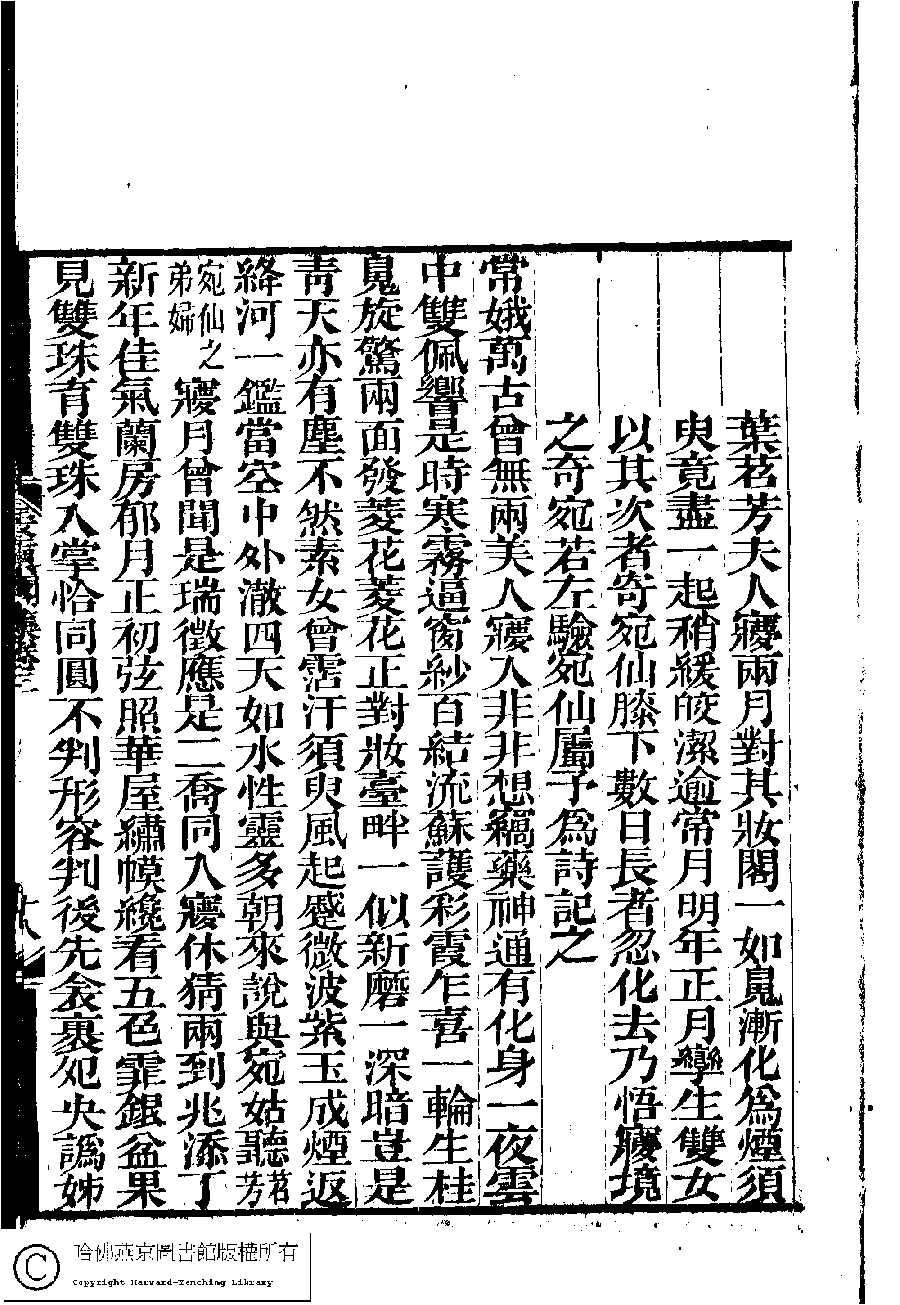 葉茗芳夫人寱兩月對其妝閣一如鳧漸化爲煙須
臾竟盡一起稍緩皎潔逾常月明年正月孿生雙女
以其次者寄宛仙膝下數日長者忽化去乃悟寱境
之奇宛若左驗宛仙屬予爲詩記之
常娥萬古曾無兩美人寱入非非想竊藥神通有化身一夜雲
中雙佩響是時寒霧逼窗紗百結流蘇護彩霞乍喜一輪生桂
鳧旋驚兩面發菱花菱花正對妝臺畔一似新磨一深暗豈是
青天亦有塵不然素女曾霑汗須臾風起蹙微波紫玉成煙返
絳河一鑑當空中外澈四天如水性靈多朝來說與宛姑聽茗芳
宛仙之弟婦寱月曾聞是瑞徵應是二喬同入寱休猜兩到兆添丁
新年佳氣蘭房郁月正初弦照華屋繡幙纔看五色霏銀盆果
見雙珠育雙珠入掌恰同圓不判形容判後先衾裹夗央譌姊
集卷三
十八
哈佛燕京圖書館版權所有
Copyright Harvard-Yenching Library